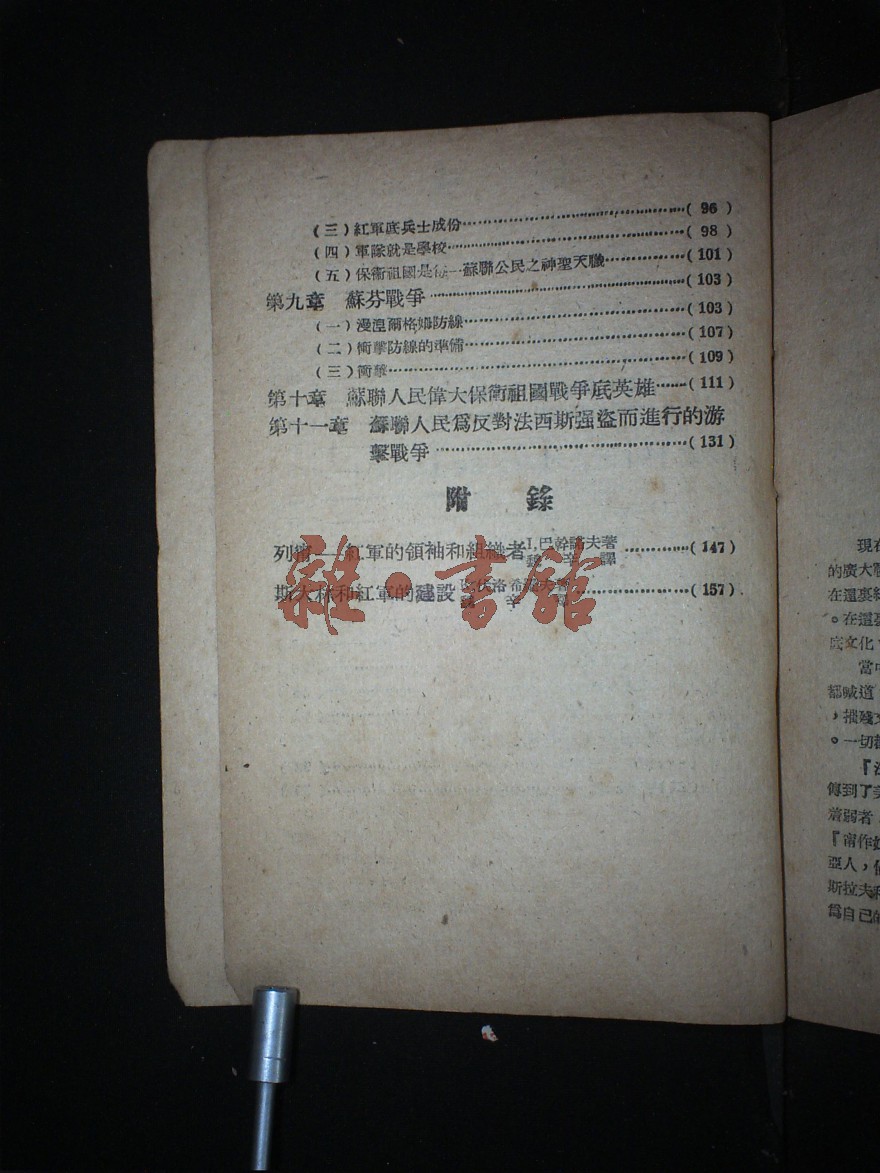 （三）紅軍底兵士成份……（96）
（四）軍隊就是學校……（98）
（五）保衞祖國是每一蘇聯公民之神聖天職……（101）
第九章　蘇芬戰爭……（103）
（一）漫湼爾格姆防線……（103）
（二）衝擊防線的準備……（107）
（三）衝擊……（109）
第十章　蘇聯人民偉大保衞祖國戰爭底英雄……（111）
第十一章　蘇聯人民爲反對法西斯强盜而進行的游
擊戰爭……（131）
附　錄
列寧——紅軍的領袖和組織者 I.巴幹諾夫著……（147）
辛　譯
斯大林和紅軍的建設 伏洛希羅夫著……（157）
辛　譯
雜·書館
現在
的廣大
在這裏
。在這
底文化，
當中
都喊道
，摧殘
。一切
『法
傳到了
弱者
『
亞人，
斯拉夫
爲自己的